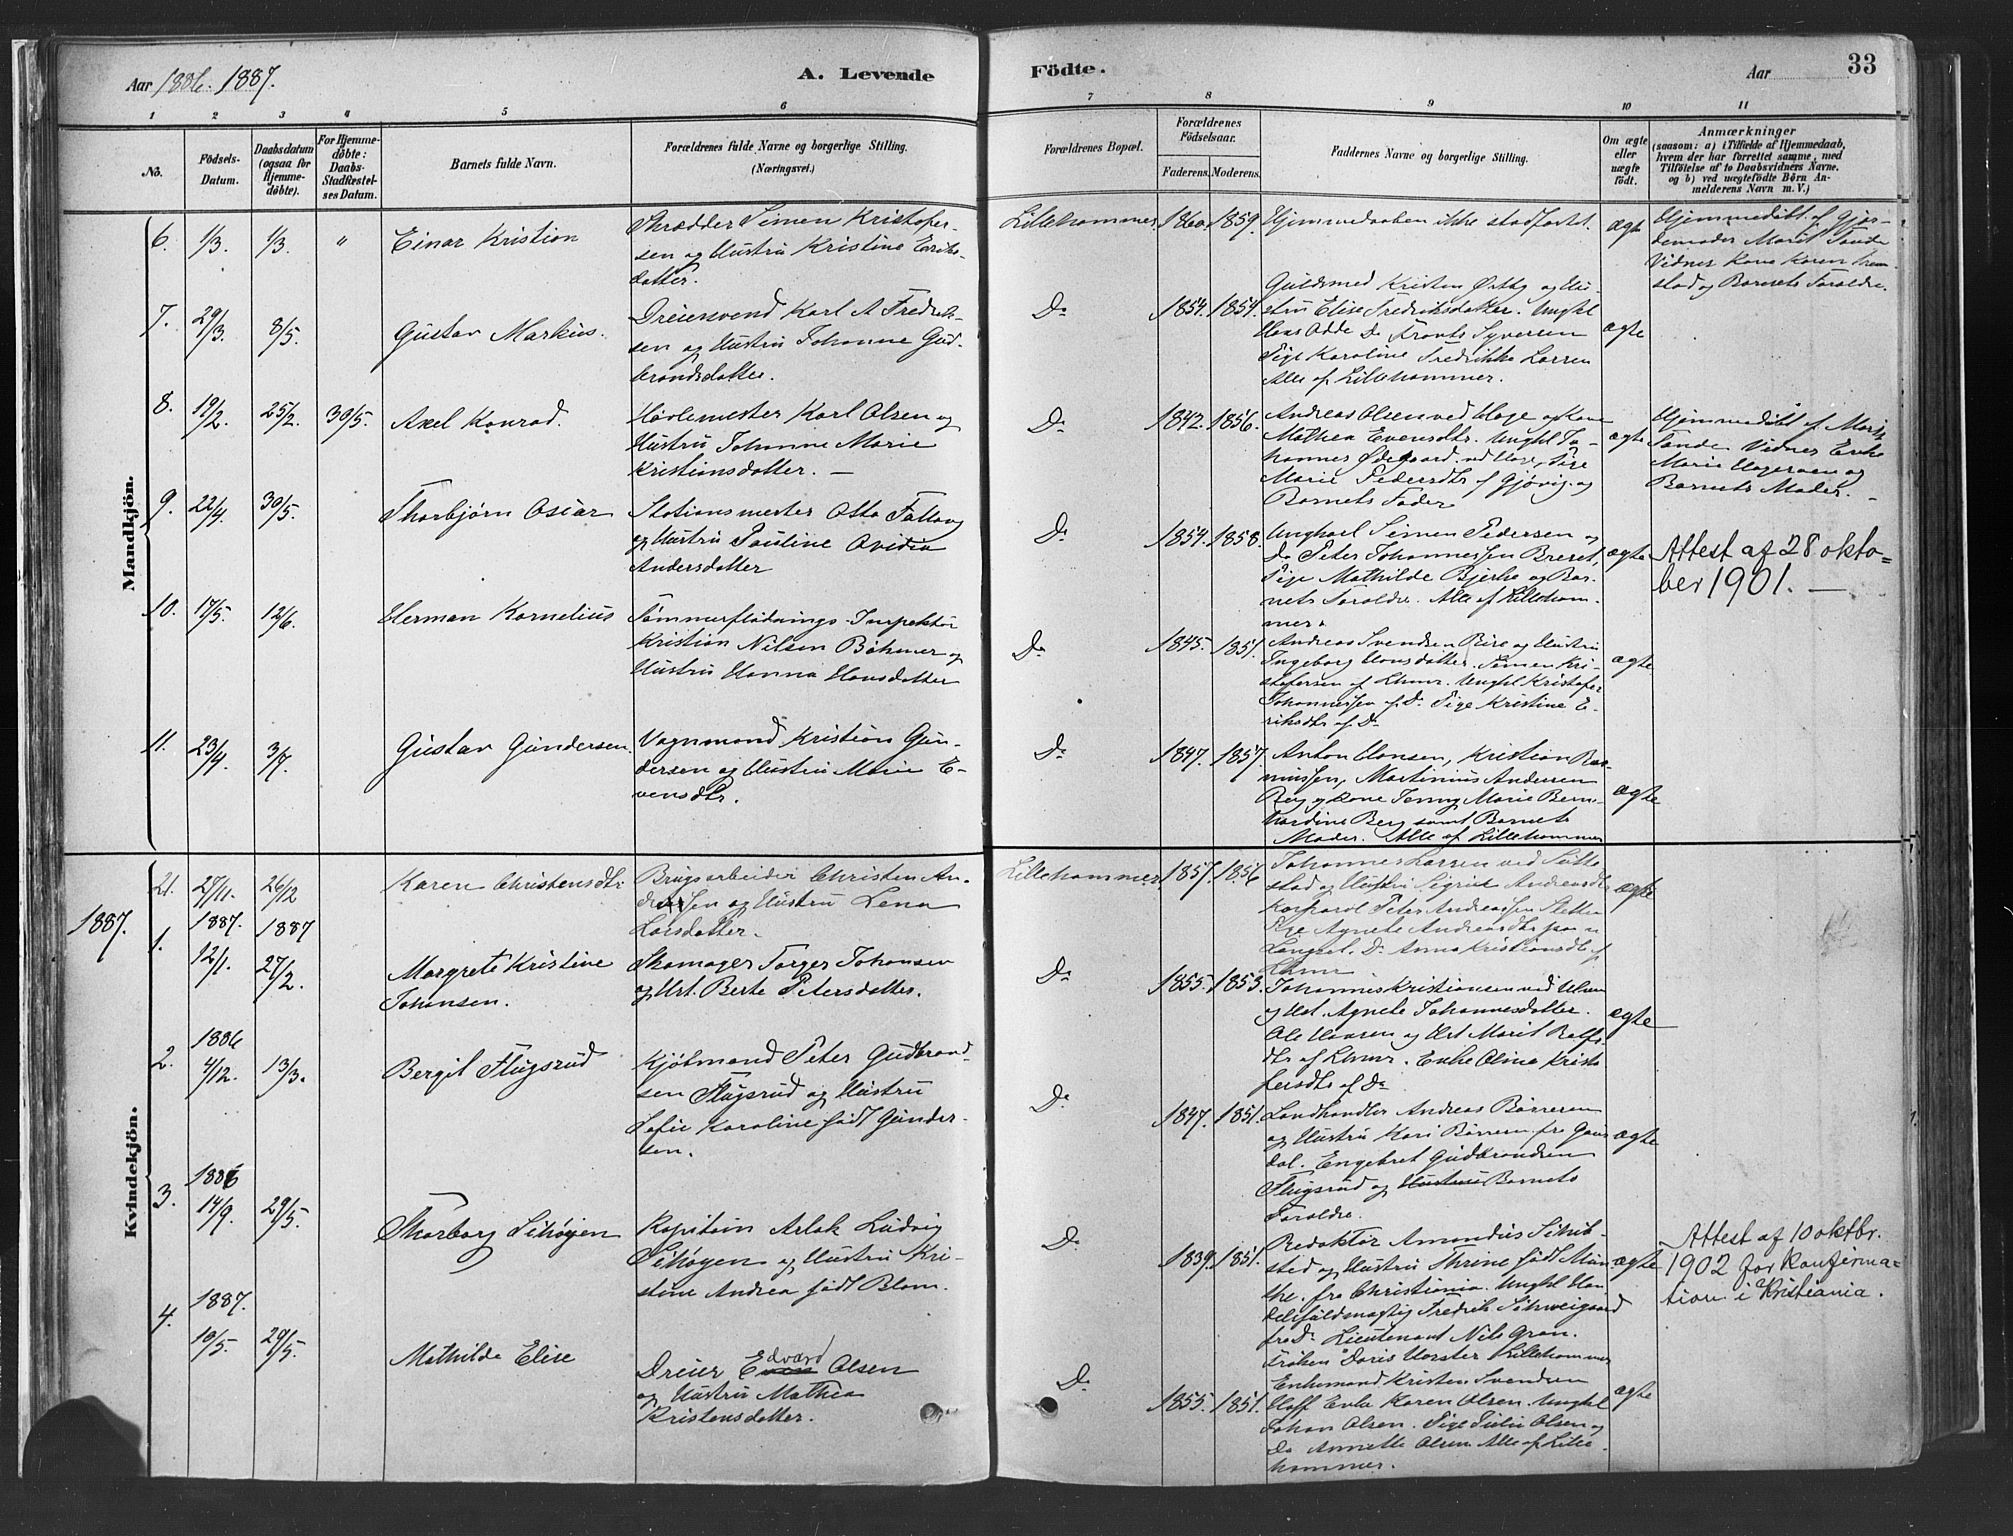 Aar 1886. 1887.
A. Levende
Födte.
Aar
33
1 2 3 4 5 6 7 8 9 10 11
No.
Födsels-
Datum.
Daabsdatum
(ogsaa for
Hjemme-
döbte).
For Hjemme-
döbte:
Daabs-
Stadfæstel-
ses Datum.
Barnets fulde Navn.
Forældrenes fulde Navne og borgerlige Stilling.
(Næringsvei.)
Forældrenes Bopæl.
Forældrenes
Födselsaar.
Faderens.
Moderens.
Faddernes Navne og borgerlige Stilling.
Om ægte
eller
uægte
födt.
Anmærkninger
(saasom: a) i Tilfælde af Hjemmedaab,
hvem der har forrettet samme, med
Tilföielse af to Daabsvidners Navne,
og b) ved uægtefödte Börn An-
melderens Navn m. V.)
Mandkjön.
6. 1/3. 1/3. "
Einar Kristian
Skrædder Simen Kristofer-
sen og Hustru Kristine Eriks-
datter.
Lillehammer. 1860. 1859.
Hjemmedaaben ikke stadfæstet.
ægte
Hjemmedöbt af Gjor-
demoder Marit Sande
Vidner Kone Karen
stad og Barnets Forældre.
7. 29/3. 8/5.
Gustav Markus.
Dreiersvend Karl A Fredrik-
sen og Hustru Johanne Gud-
brandsdatter.
Do 1854. 1854.
Guldsmed Kristen Ørtby og Hu-
stru Elise Fredriksdatter. Ungkl
Hans Odde Do Frants Syversen
Pige Karoline Fredrikke Larsen
Alle af Lillehammer.
ægte
8. 19/2. 25/2. 30/5.
Axel Konrad.
Høvlemester Karl Olsen og
Hustru Johanne Marie
Kristiansdatter. —
Do 1842. 1856.
Andreas Olsen ved Hage og Kone
Mathea Evensdtr. Ungkl Jo-
hannes Ødegaard ved Hage, Pige
Marie Pedersdtr af Gjøvig og
Barnets Fader
ægte
Hjemmedöbt af Marit
Sande Vidner Enke
Marie Hageroen og
Barnets Moder. —
9. 22/4. 30/5.
Thorbjørn Oscar
Stationsmester Otto Fattang
og Hustru Pauline Ovidia
Andersdatter
Do 1854. 1858.
Ungkarl Simen Pedersen og
Do Peter Johannessen Breset,
Pige Mathilde Bjerke og Bar-
nets Forældre. Alle af Lilleham-
mer.
ægte
Attest af 28 okto-
ber 1901. —
10. 17/5. 12/6.
Herman Kornelius
Tømmerflødnings-Inspektör
Kristian Nilsen Böhmer og
Hustru Hanna Hansdatter
Do 1845. 1851.
Andreas Svendsen Bire og Hustru
Ingeborg Hansdatter. Simen Kri-
stofersen af Lhmr. Ungkl Kristofer
Johannessen af Do Pige Kristine E-
riksdtr af Do
ægte
11. 23/4. 3/7.
Gustav Gundersen
Vognmand Kristian Gun-
dersen og Hustru Marie E-
vensdtr.
Do 1847. 1857.
Anton Hansen, Kristian Ras-
mussen, Martinius Andersen
Berg og Kone Jenny Marie Bern-
hardine Berg samt Barnets
Moder. Alle af Lillehammer
ægte
1887.
Kvindekjön.
21. 27/11. 26/12
Karen Christensdtr.
Brugsarbeider Christen An-
dreassen og Hustru Lena
Larsdatter.
Lillehammer 1857. 1856
Johannes Larsen ved Sætte-
stad og Hustru Sigrid Andreasdtr
Korporal Peter Andreassen Sletten
Pige Agnete Andreasdtr paa
Langsl. Do Anna Kristiansdtr af
Lhmr
ægte
1. 1887. 12/1. 1887 27/2.
Margrete Kristine
Johansen.
Skomager Torger Johansen
og Hst. Berte Petersdatter.
Do 1855. 1853.
Johannes Kristiansen ved
og Hst. Agnete Johannesdatter.
Ole Hansen og Hst Marit Rolfs
dtr af Lhmr. Enke Olina Kristo
fersdtr af Do
ægte
2. 1886 4/12. 13/3.
Bergit Flugsrud
Kjøtmand Peter Gudbrand-
sen Flugsrud og Hustru
Sofie Karoline født Gunder-
sen.
Do 1847. 1851.
Landhandler Andreas Börresen
og Hustru Kari Börresen fra Gaus
dal. Engebret Gudbrandsen
Flugsrud og Hustru Barnets
Forældre.
ægte
3. 1886 14/9. 29/5.
Thorborg Sihøyen
Kapitain Aslak Ludvig
Sihøyen og Hustru Kri-
stine Andrea født Blom.
Do 1839. 1851.
Redaktør Amandus Schib-
sted og Hustru Thrine født Mun
the. fra Christiania. Ungkl Han
delsfuldmægtig Fredrik Schweigaard
fra Do Lieutenant Nils Gran.
Frøken Doris Horster Lillehammer
ægte
Attest af 10 oktbr.
1902 for Konfirma-
tion i Kristiania.
4. 1887. 10/5. 29/5.
Mathilde Elise
Dreier Edvard Olsen
og Hustru Mathea
Kristensdatter.
Do 1855. 1851.
Enkemand Kristen Svendsen
Hoff Enke Karen Olsen. Ungkl
Johan Olsen. Pige Julie Olsen og
Do Annette Olsen Alle af Lille-
hammer.
ægte